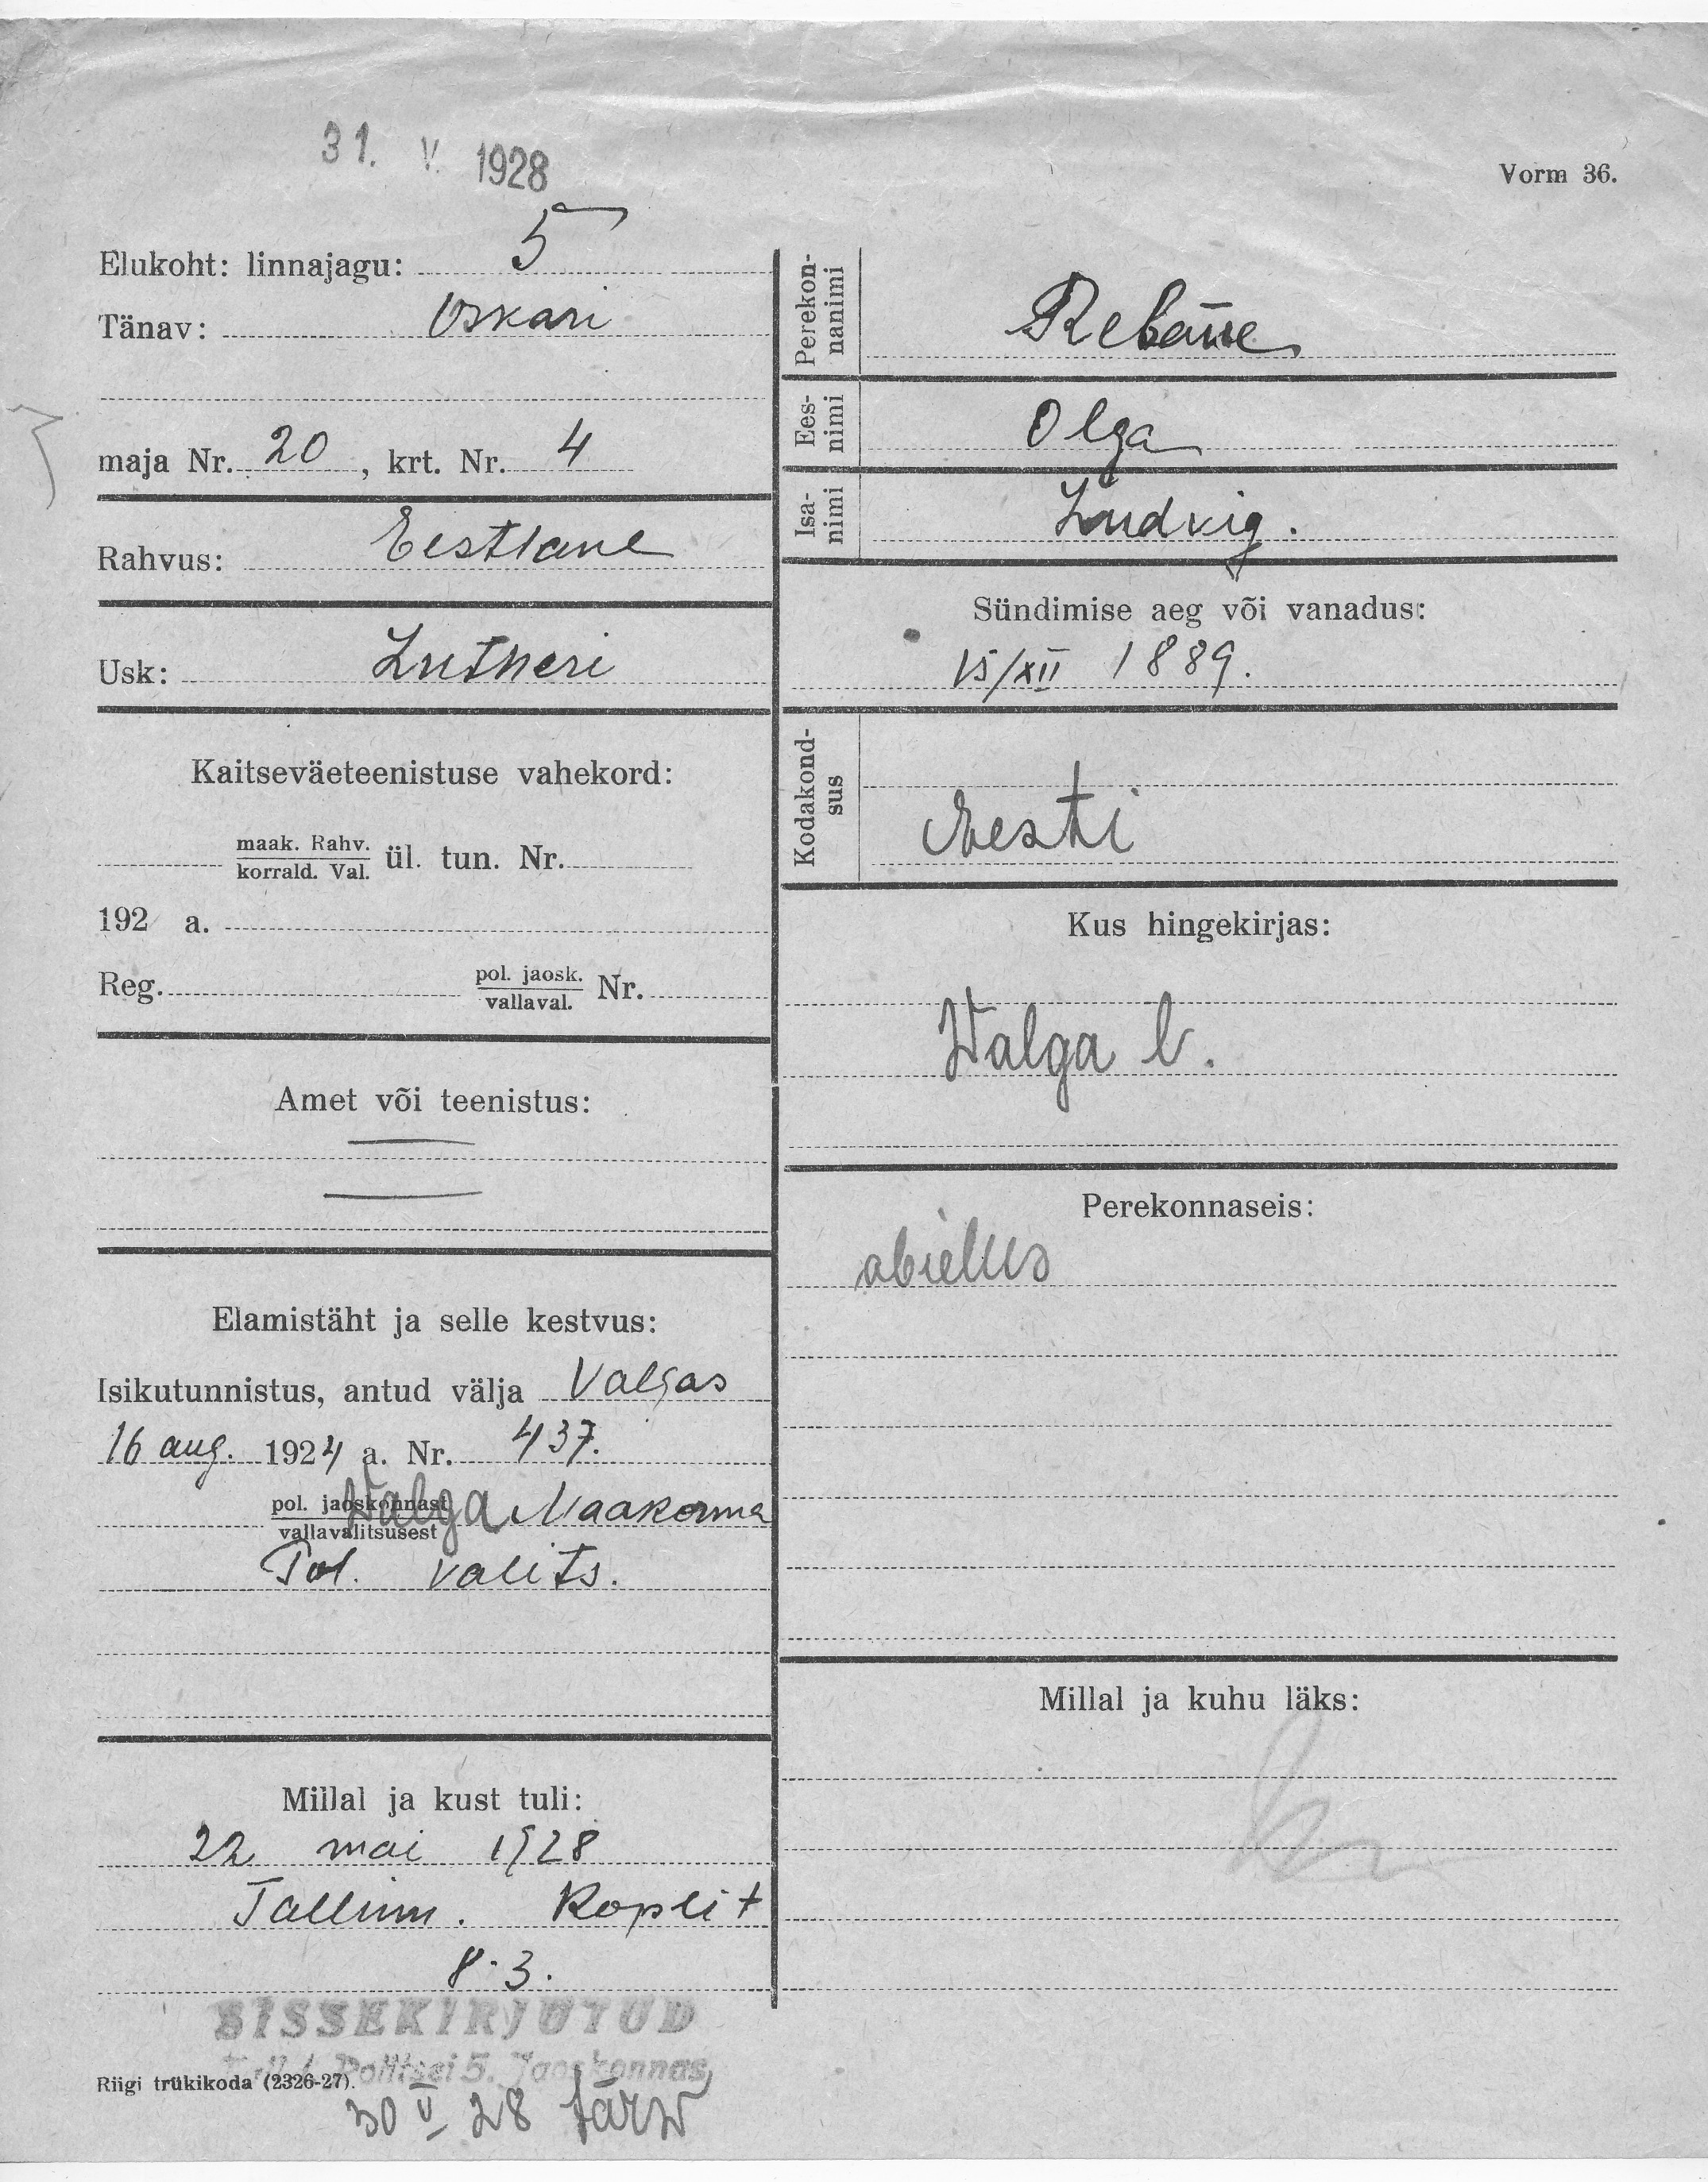 31. V. 1928
Vorm 36.
Elukoht: linnajagu: 5
Tänav: Oskari
maja Nr. 20, krt. Nr. 4
Rahvus: Eestlane
Usk: Lutheri
Kaitseväeteenistuse vahekord:
maak. Rahv.
korrald. Val. ül. tun. Nr.
192 a.
Reg. pol. jaosk.
vallaval. Nr.
Amet või teenistus:
Elamistäht ja selle kestvus:
Isikutunnistus, antud välja Valgas
16 aug. 1924 a. Nr. 437.
pol. jaoskonnast
vallavalitsusest Walga Maakonna
Pol. valits.
Millal ja kust tuli:
22 mai 1928
Tallinn. Koplit
8-3.
SISSEKIRJUTUD
Politsei 5. Jaoskonnas
Riigi trükikoda (2326-27).
30 V 28 Järw
Perekon-
nanimi
Rebane
Ees-
nimi
Olga
Isa-
nimi
Ludvig.
Sündimise aeg või vanadus:
15/XII 1889.
Kodakond-
sus
Eesti
Kus hingekirjas:
Walga l.
Perekonnaseis:
abielus
Millal ja kuhu läks: